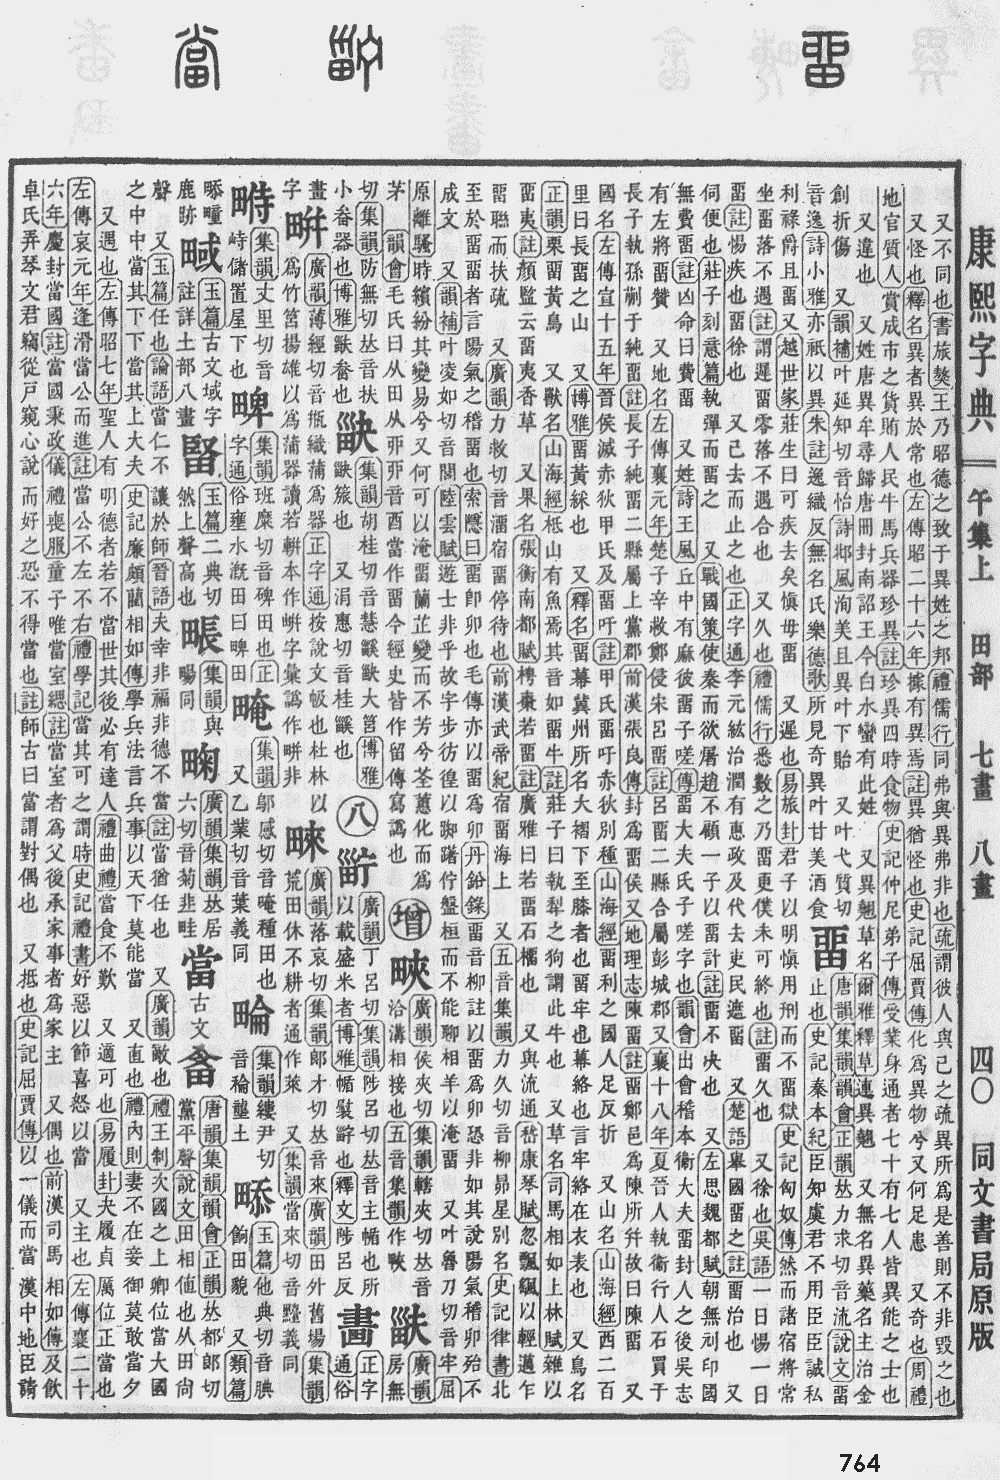 康熙字典 午集上 田部 七畫 八畫 四〇 同文書局原版
又不同也書旅獒王乃昭德之致于異姓之邦禮儒行同弗與異弗非也疏謂彼人與己之疏異所爲是善則不非毀之也
又怪也釋名異者異於常也左傳昭二十六年據有異焉註異猶怪也史記屈賈傳化爲異物兮又何足患 又奇也周禮
地官質人掌成市之貨賄人民牛馬兵器珍異註珍異四時食物史記仲尼弟子傳受業身通者七十有七人皆異能之士也
又違也 又姓唐異牟尋歸唐冊封南詔王今白水蠻有此姓 又異翹草名爾雅釋草連異翹 又無名異藥名主治金
創折傷 又韻補叶延知切音怡詩邶風洵美且異叶下貽 又叶弋質切
音逸詩小雅亦祇以異朱註逸織反無名氏樂德歌所見奇異叶甘美酒食
畱 唐韻集韻韻會正韻𠀤力求切音流說文畱
止也史記秦本紀臣知虞君不用臣臣誠私
利祿爵且畱又越世家莊生曰可疾去矣愼毋畱 又遲也易旅卦君子以明愼用刑而不畱獄史記匈奴傳然而諸宿將常
坐畱落不遇註謂遲畱零落不遇合也 又久也禮儒行悉數之乃畱更僕未可終也註畱久也 又徐也吳語一日惕一日
畱註惕疾也畱徐也 又已去而止之也正字通李元紘治潤有惠政及代去吏民遮畱 又楚語舉國畱之註畱治也 又
伺便也莊子刻意篇執彈而畱之 又戰國策使秦而欲屠趙不顧一子以畱計註畱不決也 又左思魏都賦朝無刓印國
無費畱註凶命曰費畱 又姓詩王風丘中有麻彼畱子嗟傳畱大夫氏子嗟字也韻會出會稽本衞大夫畱封人之後吳志
有左將畱贊 又地名左傳襄元年楚子辛救鄭侵宋呂畱註呂畱二縣合屬彭城郡又襄十八年夏晉人執衞行人石買于
長子執孫蒯于純畱註長子純畱二縣屬上黨郡前漢張良傳封爲畱侯又地理志陳畱註畱鄭邑爲陳所幷故曰陳畱 又
國名左傳宣十五年晉侯滅赤狄甲氏及畱吁註甲氏畱吁赤狄別種山海經畱利之國人足反折 又山名山海經西二百
里曰長畱之山 又博雅畱黃綵也 又釋名畱幕冀州所名大褶下至膝者也畱牢也幕絡也言牢絡在衣表也 又鳥名
正韻栗畱黃鳥 又獸名山海經柢山有魚焉其音如畱牛註莊子曰執犁之狗謂此牛也 又草名司馬相如上林賦雜以
畱夷註顏監云畱夷香草 又果名張衡南都賦樗棗若畱註廣雅曰若畱石榴也 又與流通嵇康琴賦忽飄颻以輕邁乍
畱聯而扶疏 又廣韻力救切音溜宿畱停待也前漢武帝紀宿畱海上 又五音集韻力久切音柳昴星別名史記律書北
至於畱畱者言陽氣之稽畱也索隱曰畱卽卯也毛傳亦以畱爲卯丹鉛錄畱音柳註以畱爲卯恐非如其說陽氣稽卯殆不
成文 又韻補叶凌如切音閭陸雲賦遊士非乎故字步彷徨以踟躇佇盤桓而不能聊相羊以淹畱 又叶魯刀切音牢屈
原離騷時繽紛其變易兮又何可以淹畱蘭芷變而不芳兮荃蕙化而爲
茅 韻會毛氏曰从田从丣丣音酉當作畱今經史皆作留傳寫譌也
增 畉 廣韻侯夾切集韻轄夾切𠀤音
洽溝相接也五音集韻作畉 畎 廣韻房無
切集韻防無切𠀤音扶
小畚器也博雅畎畚也
集韻胡桂切音慧畎大筥博雅
畎簏也 又涓惠切音桂畎也
八 𤲞 廣韻丁呂切集韻陟呂切𠀤音主㡒也所
以載盛米者博雅㡒䉛𤲞也釋文陟呂反
畵 正字通俗
畫字
廣韻薄經切音瓶織蒲爲器正字通按說文㽀也杜林以
爲竹筥揚雄以爲蒲器讀若輧本作㽀字彙譌作畊非
𤲓 廣韻落哀切集韻郎才切𠀤音來廣韻田外舊場集韻
荒田休不耕者通作萊 又集韻當來切音𪒴義同
畤 集韻丈里切音
峙儲置屋下也 畁 集韻班糜切音碑田也正
字通俗壅水漑田曰畁田
畮 集韻鄔感切音唵種田也 又
集韻乙業切音葉義同 𤲕 集韻縷尹切
音稐壟土
𤲖 玉篇他典切音腆
𤲖𤲟鹿跡 又類篇
畷 玉篇古文域字
註詳土部八畫
玉篇二典切
然上聲高也
集韻與
暘同
廣韻集韻𠀤居
六切音菊韭畦
當 古文 唐韻集韻韻會正韻𠀤都郎切
黨平聲說文田相值也从田尙
聲 又玉篇任也論語當仁不讓於師晉語夫幸非福非德不當註當猶任也 又廣韻敵也禮王制次國之上卿位當大國
之中中當其下下當其上大夫史記廉頗藺相如傳學兵法言兵事以天下莫能當 又直也禮內則妻不在妾御莫敢當夕
又遇也左傳昭七年聖人有明德者若不當世其後必有達人禮曲禮當食不歎 又適可也易履卦夬履貞厲位正當也
左傳哀元年逢滑當公而進註當公不左不右禮學記當其可之謂時史記禮書好惡以節喜怒以當 又主也左傳襄二十
六年慶封當國註當國秉政儀禮喪服童子唯當室緦註當室者爲父後承家事者爲家主 又偶也前漢司馬相如傳及飮
卓氏弄琴文君竊從戶窺心說而好之恐不得當也註師古曰當謂對偶也 又抵也史記屈賈傳以一儀而當漢中地臣請
764